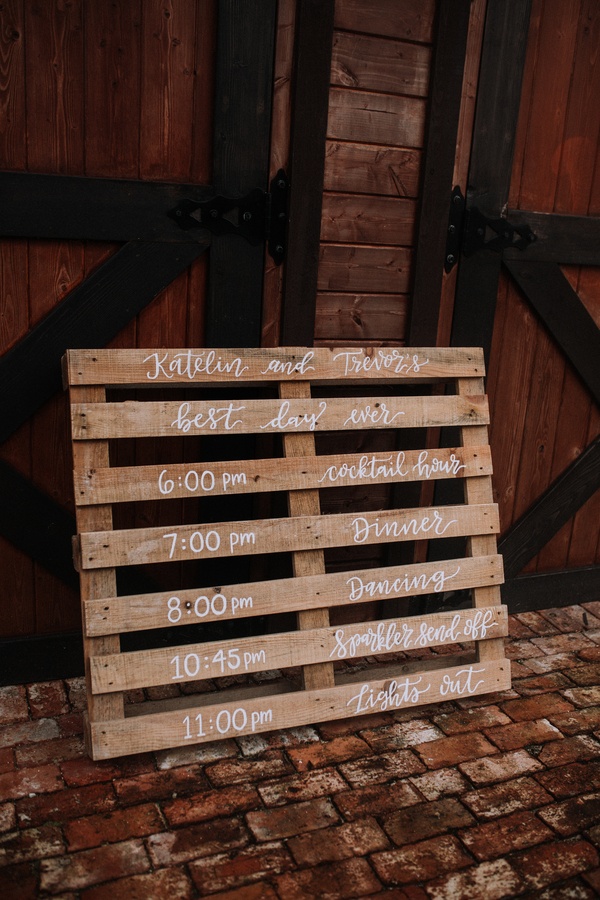 Katelin and Trevor's
best day ever
6:00 pm cocktail hour
7:00 pm Dinner
8:00 pm Dancing
10:45 pm Sparkler send off
11:00 pm Lights out